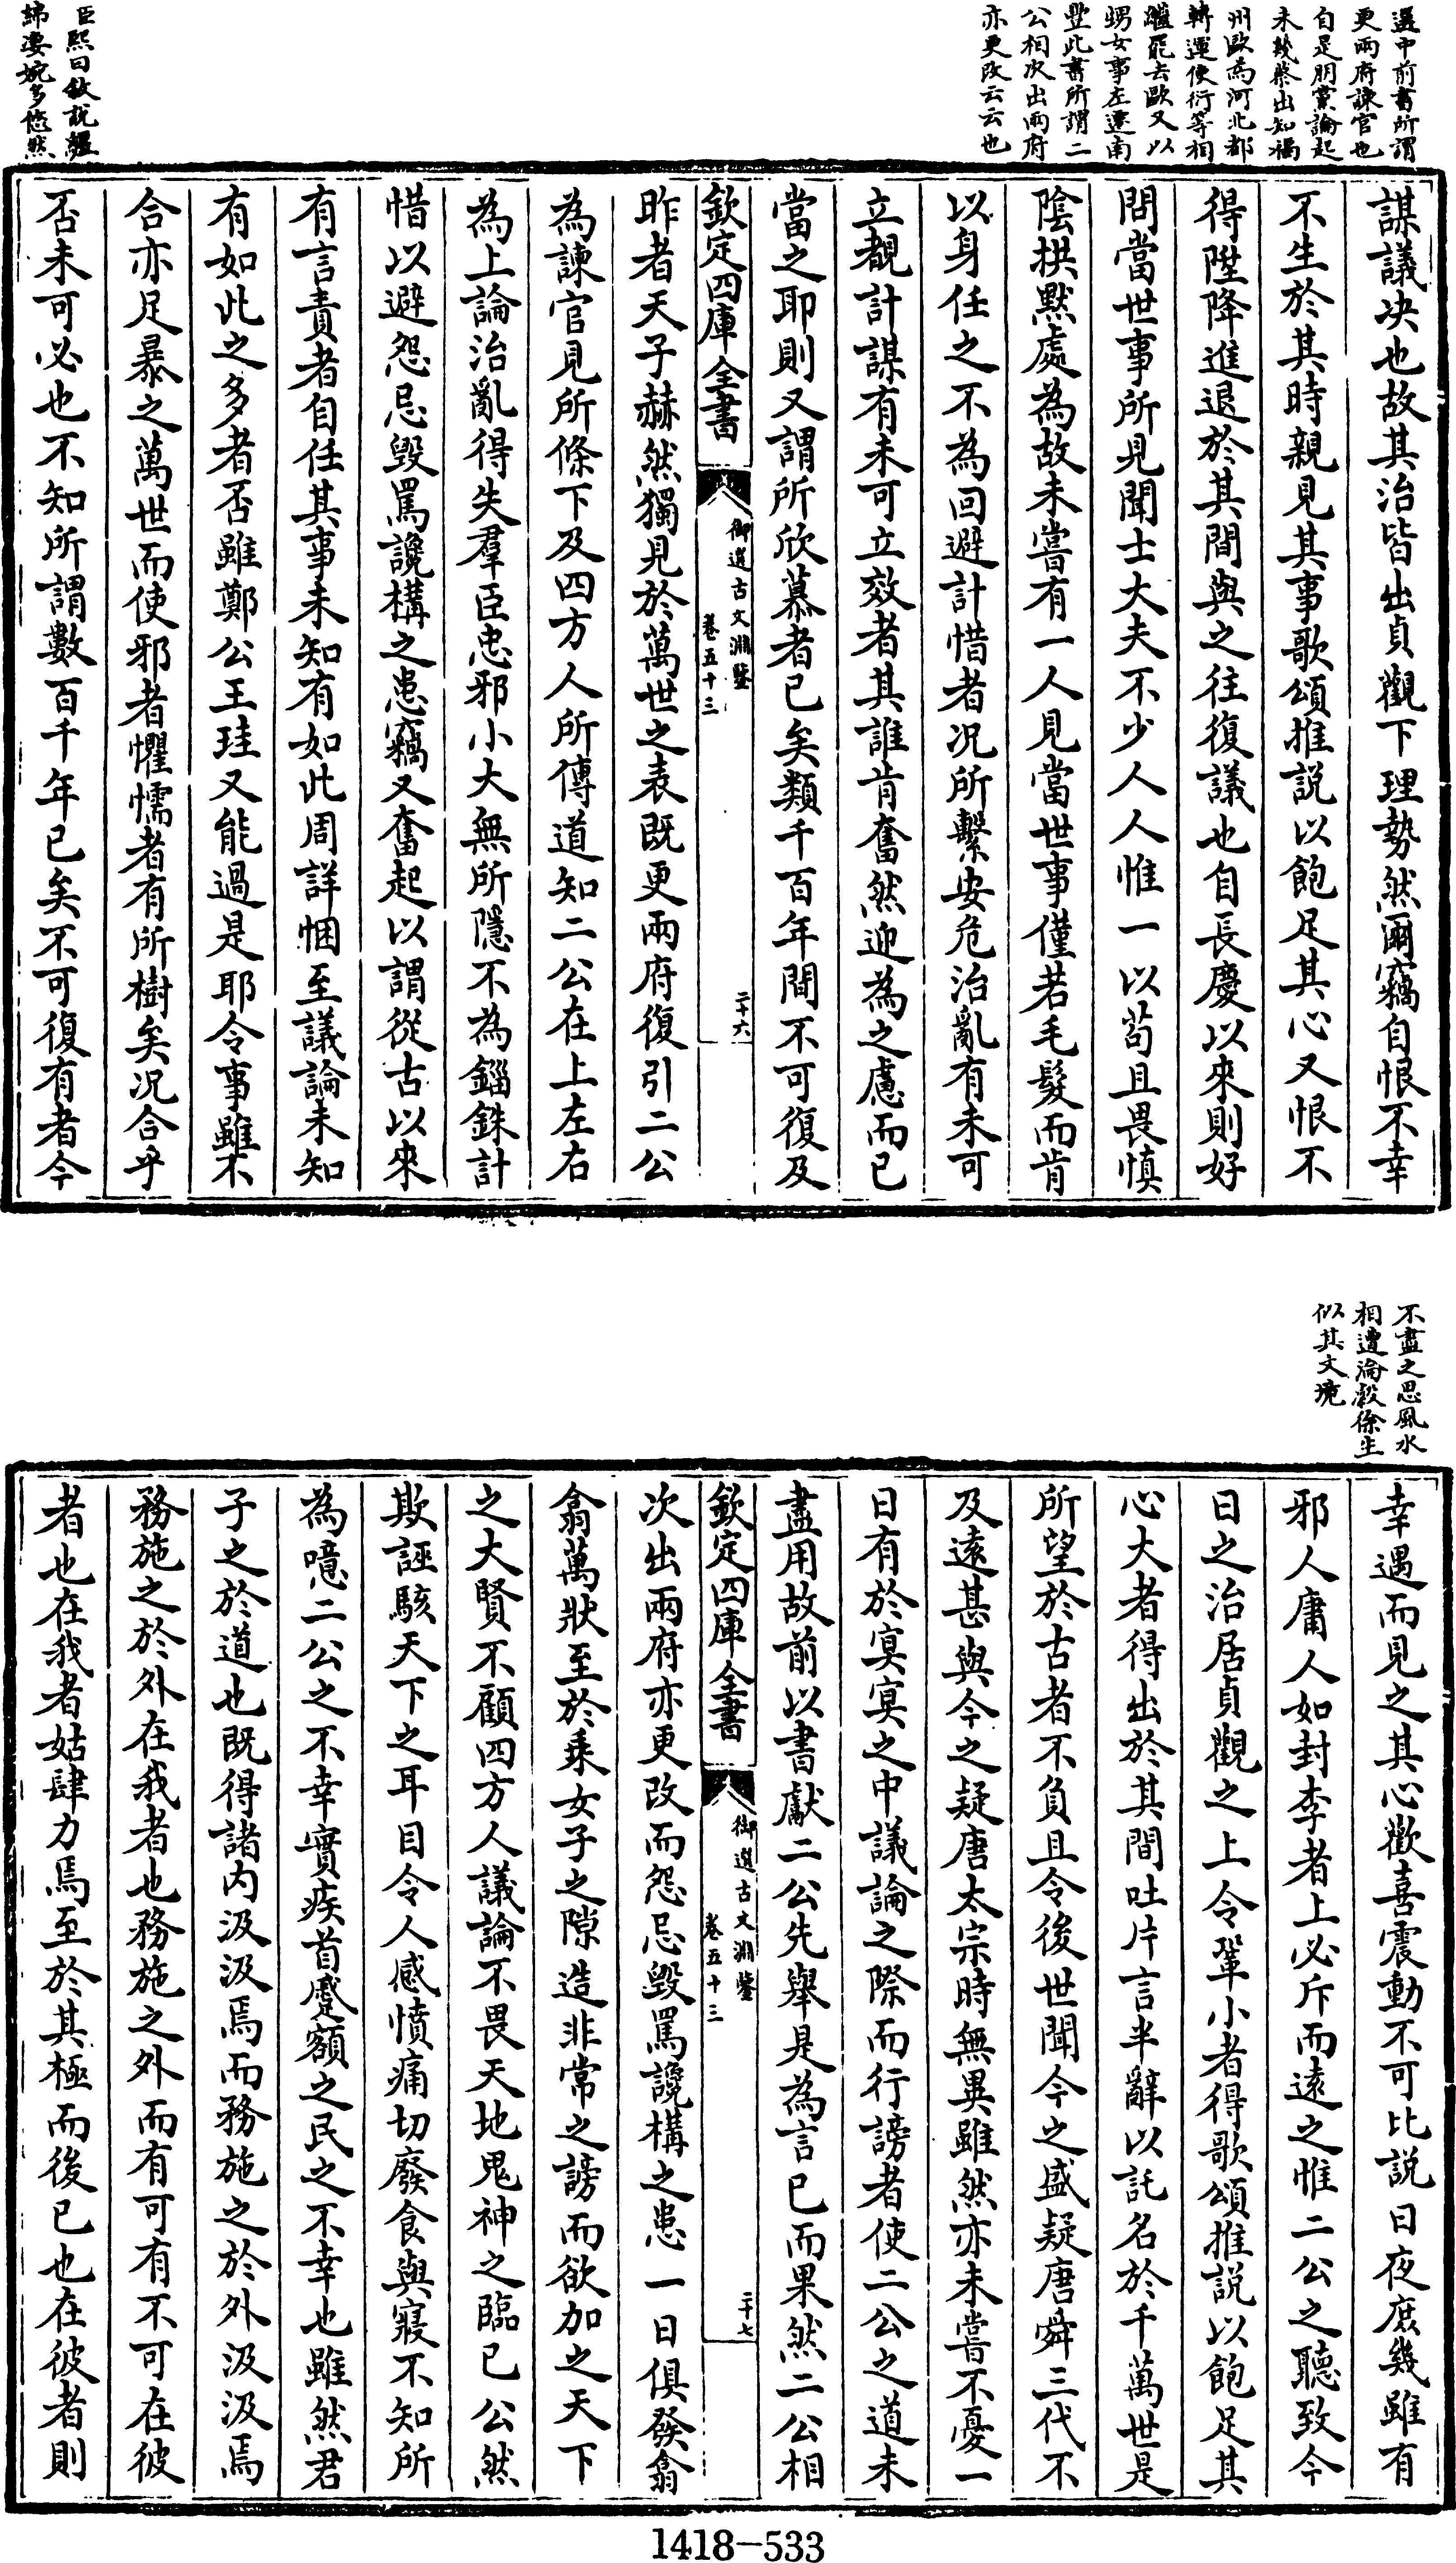 選中前書所謂
更兩府諫官也
自是朋黨論起
未幾蔡出知福
州歐為河北都
轉運使衍等相
繼罷去歐又以
甥女事左遷南
豐此書所謂二
公相次出兩府
亦更改云云也
臣熙曰敘說纚
綿凄婉多悠然
謀議决也故其治皆出貞觀下理勢然爾竊自恨不幸
不生於其時親見其事歌頌推説以飽足其心又恨不
得陞降進退於其間與之往復議也自長慶以來則好
問當世事所見聞士大夫不少人人惟一以苟且畏慎
陰拱黙處為故未嘗有一人見當世事僅若毛髮而肯
以身任之不為回避計惜者况所繫安危治亂有未可
立覩計謀有未可立效者其誰肯奮然迎為之慮而已
當之耶則又謂所欣慕者已矣類千百年間不可復及
欽定四庫全書
御選古文淵鑒
卷五十三
二十六
昨者天子赫然獨見於萬世之表既更兩府復引二公
為諫官見所條下及四方人所傳道知二公在上左右
為上論治亂得失羣臣忠邪小大無所隱不為錙銖計
惜以避怨忌毀罵讒構之患竊又奮起以謂從古以來
有言責者自任其事未知有如此周詳悃至議論未知
有如此之多者否雖鄭公王珪又能過是耶今事雖不
合亦足暴之萬世而使邪者懼懦者有所樹矣况合乎
否未可必也不知所謂數百千年已矣不可復有者今
不盡之思風水
相遭淪縠徐生
似其文境
幸遇而見之其心歡喜震動不可比説日夜庶幾雖有
邪人庸人如封李者上必斥而遠之惟二公之聽致今
日之治居貞觀之上令鞏小者得歌頌推説以飽足其
心大者得出於其間吐片言半辭以託名於千萬世是
所望於古者不負且令後世聞今之盛疑唐舜三代不
及遠甚與今之疑唐太宗時無異雖然亦未嘗不憂一
日有於冥冥之中議論之際而行謗者使二公之道未
盡用故前以書獻二公先舉是為言已而果然二公相
欽定四庫全書
御選古文淵鑒
卷五十三
二十七
次出兩府亦更改而怨忌毀罵讒構之患一日俱發翕
翕萬狀至於乗女子之隙造非常之謗而欲加之天下
之大賢不顧四方人議論不畏天地鬼神之臨已公然
欺誣駭天下之耳目令人感憤痛切廢食與寢不知所
為噫二公之不幸實疾首蹙額之民之不幸也雖然君
子之於道也既得諸内汲汲焉而務施之於外汲汲焉
務施之於外在我者也務施之外而有可有不可在彼
者也在我者姑肆力焉至於其極而後已也在彼者則
1418-533